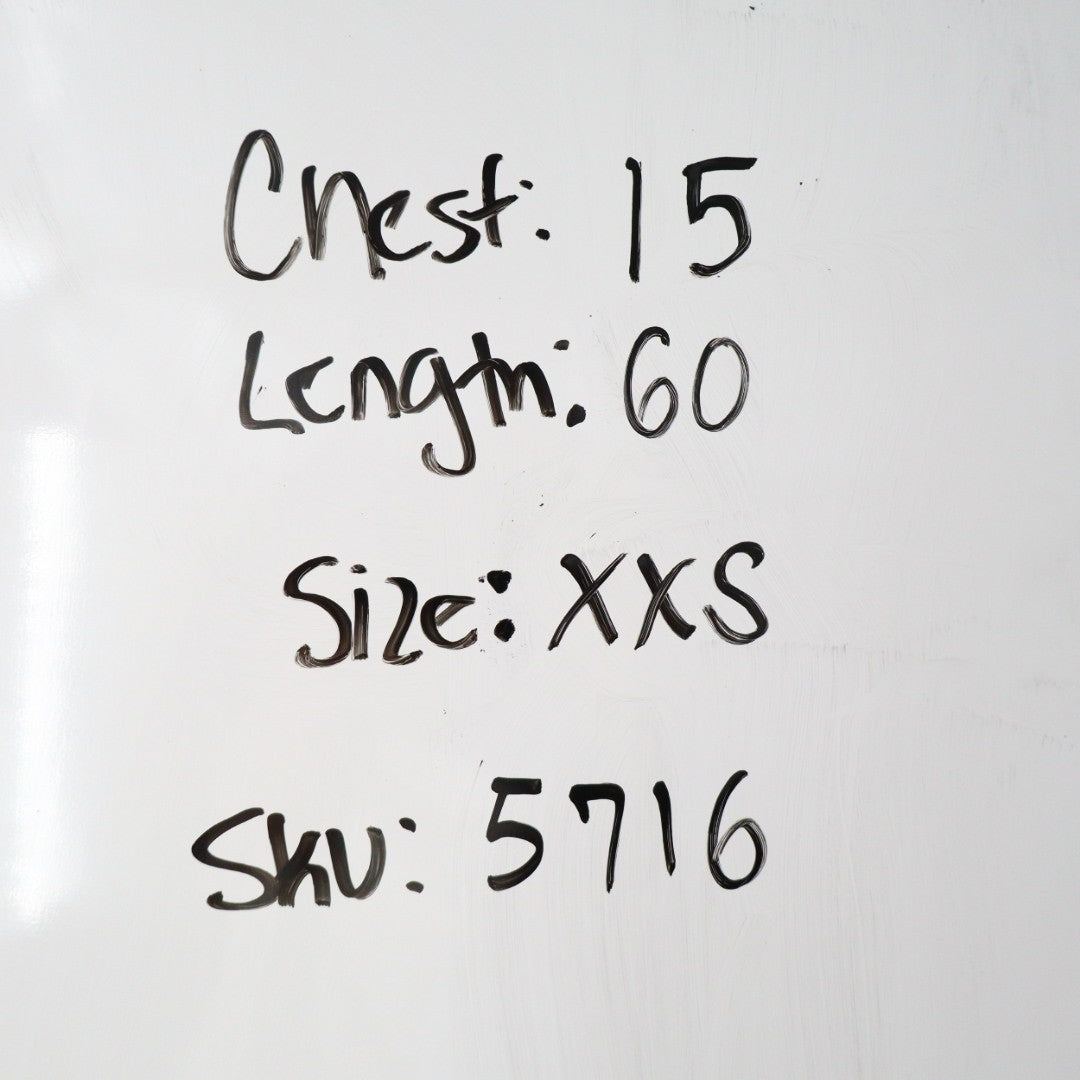 Chest: 15
Length: 60
Size: XXS
Sku: 5716